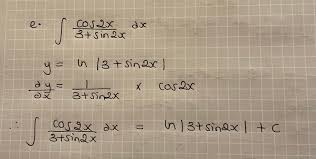 e. ∫ cos2x/3+sin2x ∂x
y = ln |3+sin2x|
∂y/∂x = 1/3+sin2x × cos2x
∴ ∫ cos2x/3+sin2x ∂x = ln|3+sin2x| + C